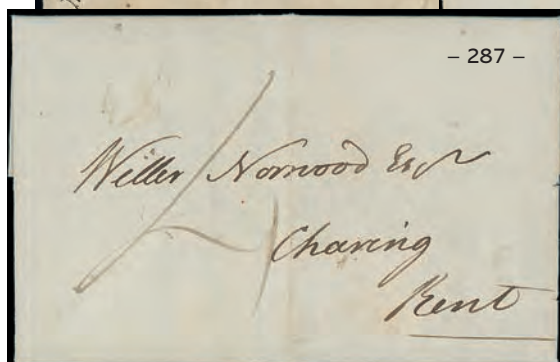 – 287 –
Weller Norwood Esqr
Charing
Kent